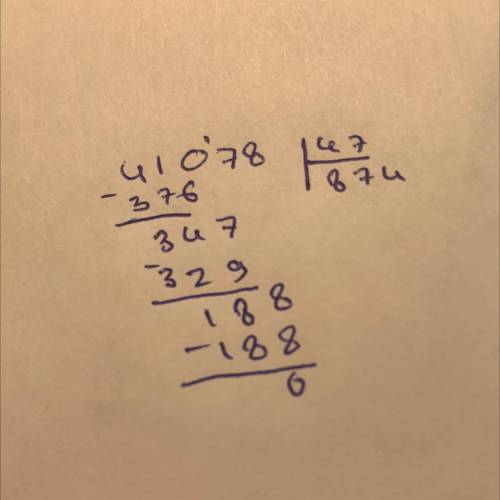 41078 47
-376 874
347
-329
188
-188
0